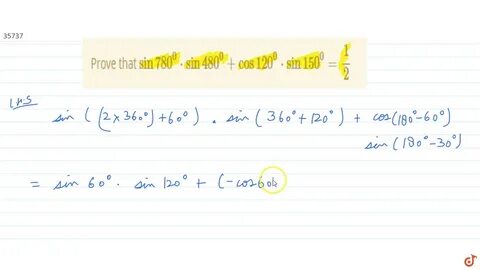 35737
Prove that sin 780⁰ · sin 480⁰ + cos 120⁰ · sin 150⁰ = 1/2
LHS
sin ((2 x 360°) + 60°) . sin (360° + 120°) + cos (180° - 60°)
sin (180° - 30°)
= sin 60° . sin 120° + (- cos 60